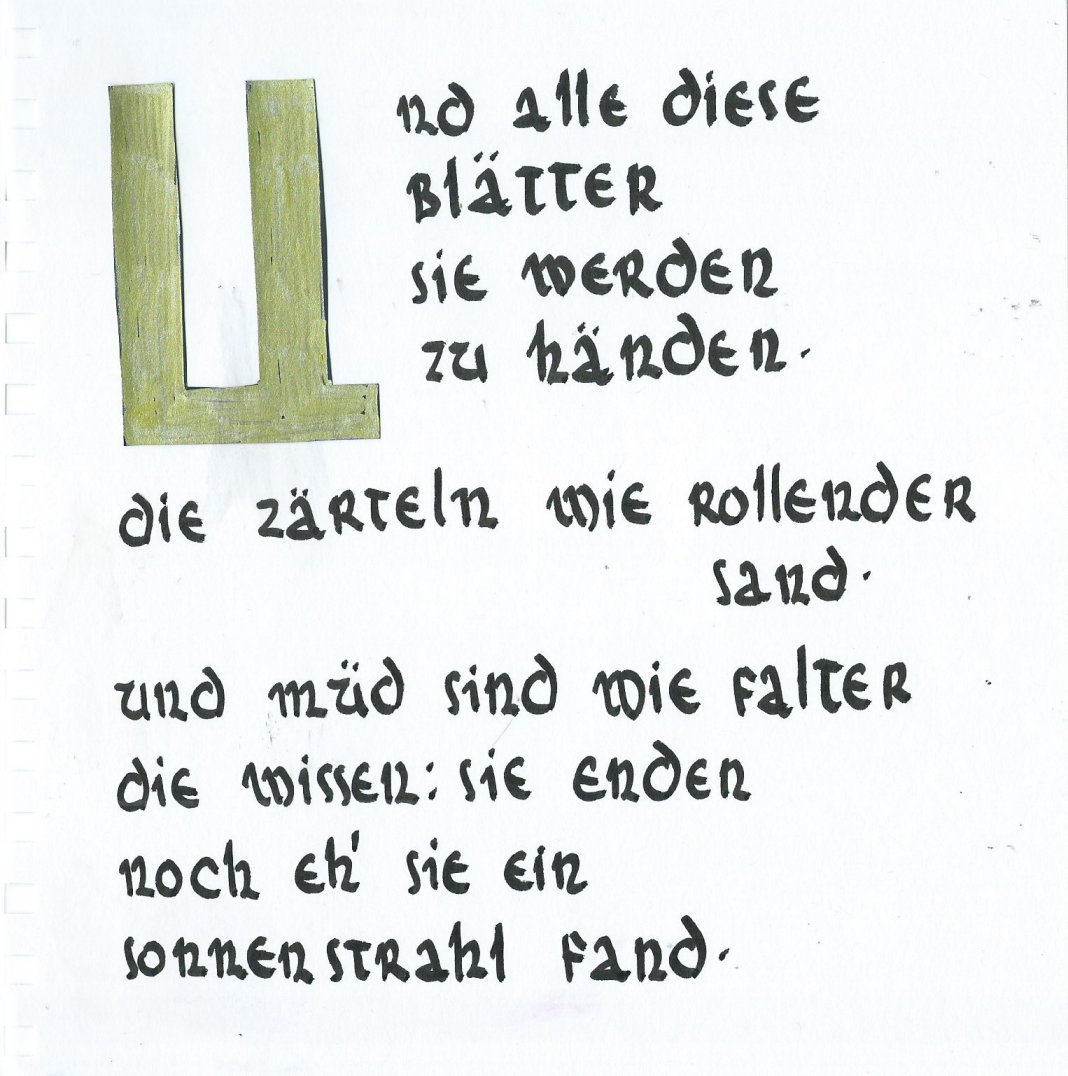 Und alle diese
Blätter
sie werden
zu händen.
die zärteln wie rollender
sand.
und müd sind wie falter
die wissen: sie enden
noch eh' sie ein
sonnenstrahl fand.